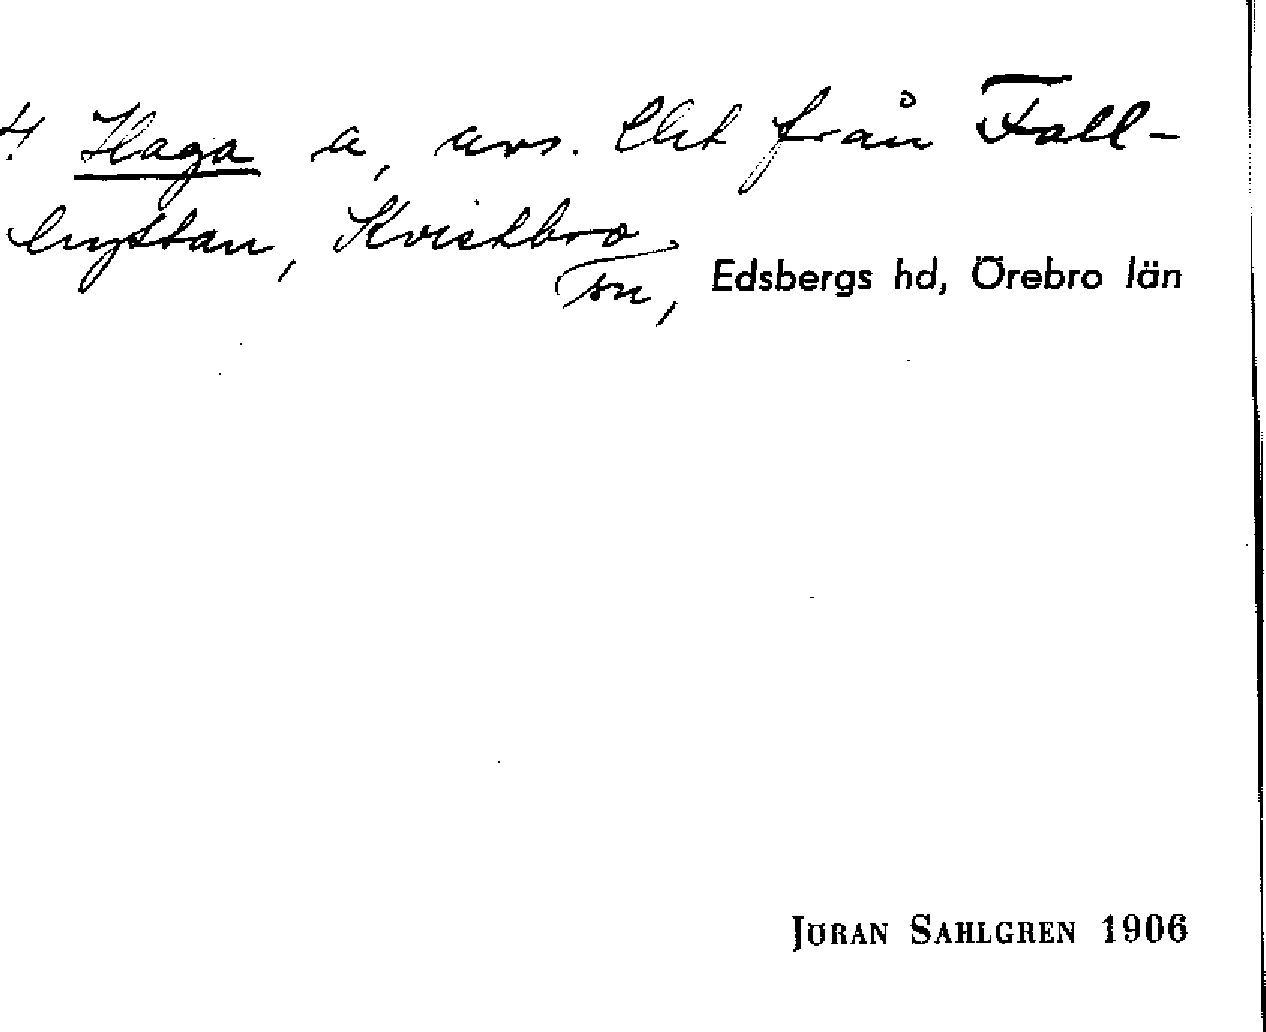 4. Haga a, avs. fr från Fall-
hyttan, Kvistbro
sn, Edsbergs hd, Örebro län
JÖRAN SAHLGREN 1906